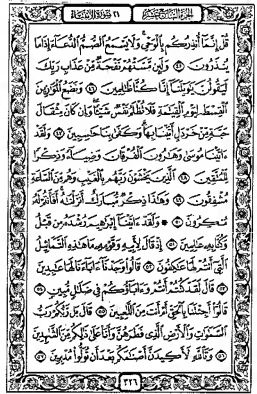 الجزء السابع عشر ٢١ سورة الأنبياء
قُلْ إِنَّمَآ أُنذِرُكُم بِٱلْوَحْىِ ۚ وَلَا يَسْمَعُ ٱلصُّمُّ ٱلدُّعَآءَ إِذَا مَا
يُنذَرُونَ ٤٥ وَلَئِن مَّسَّتْهُمْ نَفْحَةٌ مِّنْ عَذَابِ رَبِّكَ
لَيَقُولُنَّ يَٰوَيْلَنَآ إِنَّا كُنَّا ظَٰلِمِينَ ٤٦ وَنَضَعُ ٱلْمَوَٰزِينَ
ٱلْقِسْطَ لِيَوْمِ ٱلْقِيَٰمَةِ فَلَا تُظْلَمُ نَفْسٌ شَيْـًٔا ۖ وَإِن كَانَ مِثْقَالَ
حَبَّةٍ مِّنْ خَرْدَلٍ أَتَيْنَا بِهَا ۗ وَكَفَىٰ بِنَا حَٰسِبِينَ ٤٧ وَلَقَدْ
ءَاتَيْنَا مُوسَىٰ وَهَٰرُونَ ٱلْفُرْقَانَ وَضِيَآءً وَذِكْرًا
لِّلْمُتَّقِينَ ٤٨ ٱلَّذِينَ يَخْشَوْنَ رَبَّهُم بِٱلْغَيْبِ وَهُم مِّنَ ٱلسَّاعَةِ
مُشْفِقُونَ ٤٩ وَهَٰذَا ذِكْرٌ مُّبَارَكٌ أَنزَلْنَٰهُ ۚ أَفَأَنتُمْ لَهُۥ
مُنكِرُونَ ٥٠ ۞ وَلَقَدْ ءَاتَيْنَآ إِبْرَٰهِيمَ رُشْدَهُۥ مِن قَبْلُ
وَكُنَّا بِهِۦ عَٰلِمِينَ ٥١ إِذْ قَالَ لِأَبِيهِ وَقَوْمِهِۦ مَا هَٰذِهِ ٱلتَّمَاثِيلُ
ٱلَّتِىٓ أَنتُمْ لَهَا عَٰكِفُونَ ٥٢ قَالُوا۟ وَجَدْنَآ ءَابَآءَنَا لَهَا عَٰبِدِينَ
٥٣ قَالَ لَقَدْ كُنتُمْ أَنتُمْ وَءَابَآؤُكُمْ فِى ضَلَٰلٍ مُّبِينٍ ٥٤
قَالُوٓا۟ أَجِئْتَنَا بِٱلْحَقِّ أَمْ أَنتَ مِنَ ٱللَّٰعِبِينَ ٥٥ قَالَ بَل رَّبُّكُمْ رَبُّ
ٱلسَّمَٰوَٰتِ وَٱلْأَرْضِ ٱلَّذِى فَطَرَهُنَّ وَأَنَا۠ عَلَىٰ ذَٰلِكُم مِّنَ ٱلشَّٰهِدِينَ
٥٦ وَتَٱللَّهِ لَأَكِيدَنَّ أَصْنَٰمَكُم بَعْدَ أَن تُوَلُّوا۟ مُدْبِرِينَ ٥٧
٣٢٦